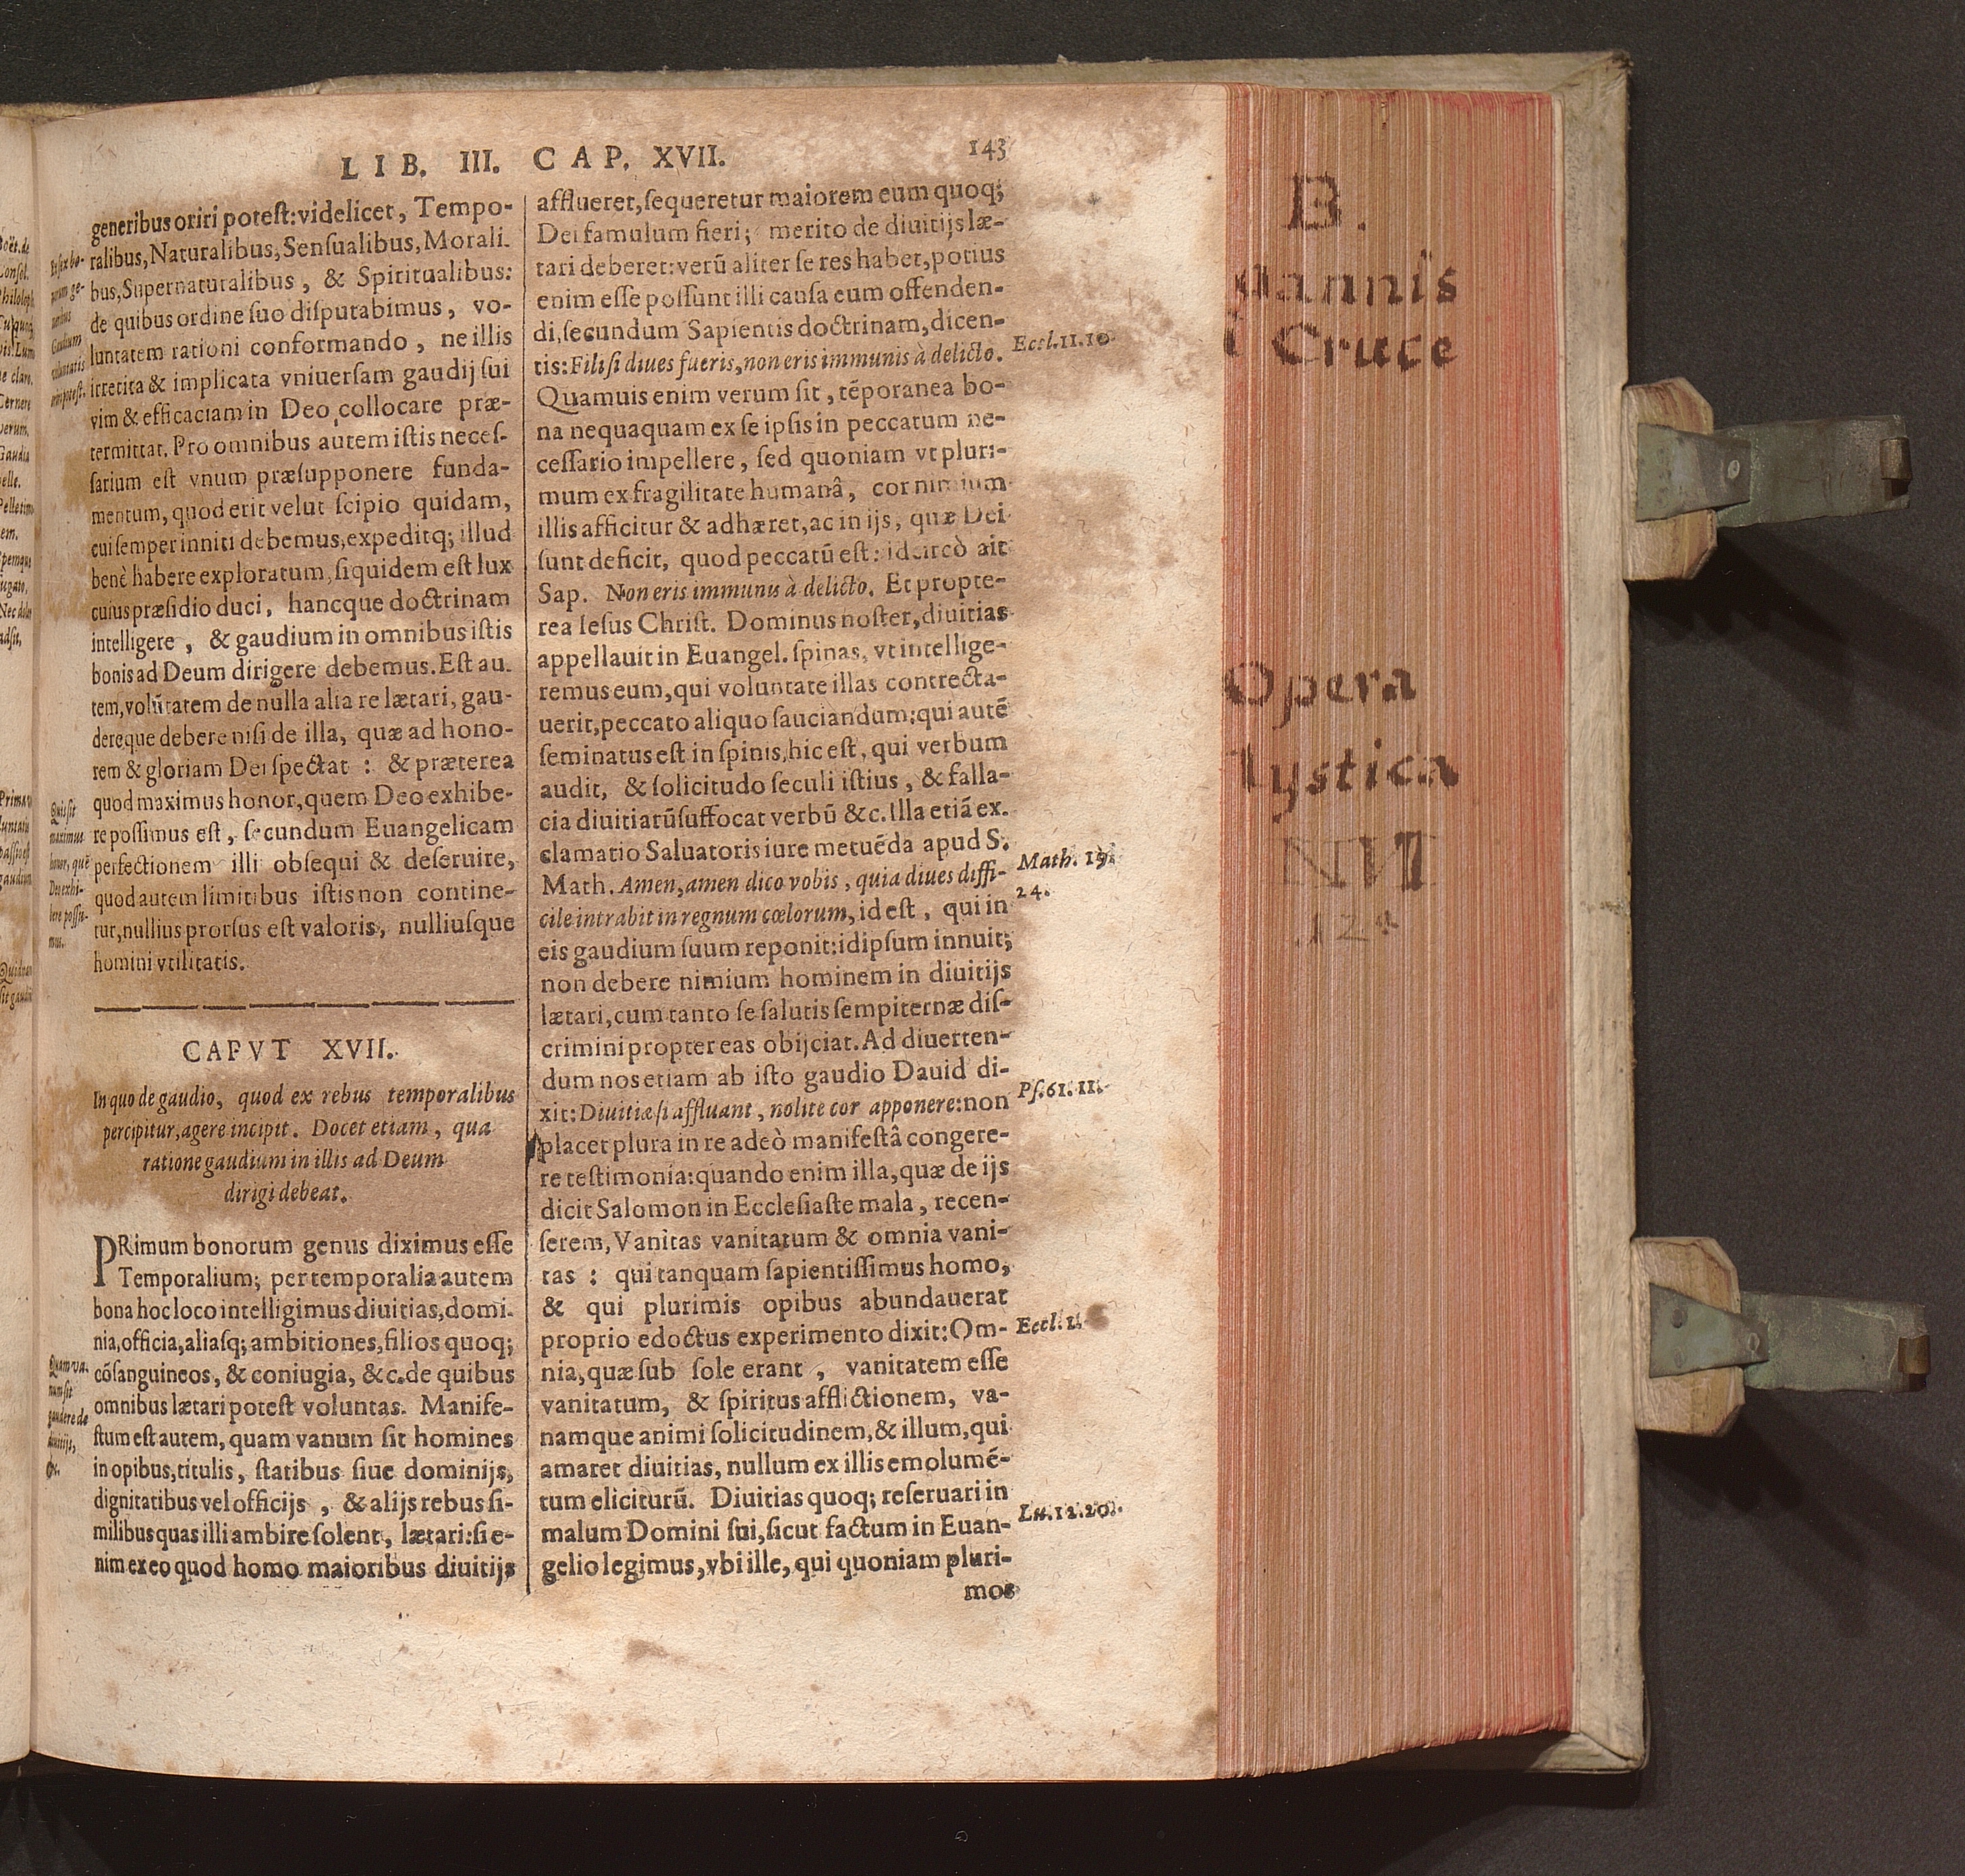 LIB. III. CAP. XVII. 143
generibus oriri poteſt: videlicet, Tempo-
ralibus, Naturalibus, Senſualibus, Morali-
bus, Supernaturalibus, & Spiritualibus:
de quibus ordine ſuo diſputabimus, vo-
luntatem rationi conformando, ne illis
irretita & implicata vniuerſam gaudij ſui
vim & efficaciam in Deo collocare præ-
termittat. Pro omnibus autem iſtis neceſ-
ſarium eſt vnum præſupponere funda-
mentum, quod erit velut ſcipio quidam,
cui ſemper inniti debemus, expeditq; illud
benè habere exploratum, ſiquidem eſt lux
cuius præſidio duci, hancque doctrinam
intelligere, & gaudium in omnibus iſtis
bonis ad Deum dirigere debemus. Eſt au-
tem, volũtatem de nulla alia re lætari, gau-
dereque debere niſi de illa, quæ ad hono-
rem & gloriam Dei ſpectat: & præterea
quod maximus honor, quem Deo exhibe-
re poſſimus eſt, ſecundum Euangelicam
perfectionem illi obſequi & deſeruire,
quod autem limitibus iſtis non contine-
tur, nullius prorſus eſt valoris, nulliuſque
homini vtilitatis.
Quis ſit
maximus
honor, quẽ
Deo exhi-
bere poſſu-
mus.
CAPVT XVII.
In quo de gaudio, quod ex rebus temporalibus
percipitur, agere incipit. Docet etiam, qua
ratione gaudium in illis ad Deum
dirigi debeat.
PRimum bonorum genus diximus eſſe
Temporalium; per temporalia autem
bona hoc loco intelligimus diuitias, domi-
nia, officia, aliaſq; ambitiones, filios quoq;
cõſanguineos, & coniugia, &c. de quibus
omnibus lætari poteſt voluntas. Manife-
ſtum eſt autem, quam vanum ſit homines
in opibus, titulis, ſtatibus ſiue dominijs,
dignitatibus vel officijs, & alijs rebus ſi-
milibus quas illi ambire ſolent, lætari: ſi e-
nim ex eo quod homo maioribus diuitijs
Quam va-
num ſit
gaudere de
diuitijs,
&c.
afflueret, ſequeretur maiorem eum quoq;
Dei famulum fieri; merito de diuitijs læ-
tari deberet: verũ aliter ſe res habet, potius
enim eſſe poſſunt illi cauſa eum offenden-
di, ſecundum Sapientis doctrinam, dicen-
tis: Fili ſi diues fueris, non eris immunis à delicto.
Quamuis enim verum ſit, tẽporanea bo-
na nequaquam ex ſe ipſis in peccatum ne-
ceſſario impellere, ſed quoniam vt pluri-
mum ex fragilitate humanâ, cor nimium
illis afficitur & adhæret, ac in ijs, quæ Dei
ſunt deficit, quod peccatũ eſt: idcircò ait
Sap. Non eris immunis à delicto. Et propte-
rea Ieſus Chriſt. Dominus noſter, diuitias
appellauit in Euangel. ſpinas, vt intellige-
remus eum, qui voluntate illas contrecta-
uerit, peccato aliquo ſauciandum: qui autẽ
ſeminatus eſt in ſpinis, hic eſt, qui verbum
audit, & ſolicitudo ſeculi iſtius, & falla-
cia diuitiarũ ſuffocat verbũ &c. Illa etiã ex-
clamatio Saluatoris iure metuẽda apud S.
Math. Amen, amen dico vobis, quia diues diffi-
cile intrabit in regnum cœlorum, id eſt, qui in
eis gaudium ſuum reponit: idipſum innuit;
non debere nimium hominem in diuitijs
lætari, cum tanto ſe ſalutis ſempiternæ diſ-
crimini propter eas obijciat. Ad diuerten-
dum nos etiam ab iſto gaudio Dauid di-
xit: Diuitiæ ſi affluant, nolite cor apponere: non
placet plura in re adeò manifeſtâ congere-
re teſtimonia: quando enim illa, quæ de ijs
dicit Salomon in Eccleſiaſte mala, recen-
ſerem, Vanitas vanitatum & omnia vani-
tas: qui tanquam ſapientiſſimus homo,
& qui plurimis opibus abundauerat
proprio edoctus experimento dixit: Om-
nia, quæ ſub ſole erant, vanitatem eſſe
vanitatum, & ſpiritus afflictionem, va-
namque animi ſolicitudinem, & illum, qui
amaret diuitias, nullum ex illis emolumẽ-
tum eliciturũ. Diuitias quoq; reſeruari in
malum Domini ſui, ſicut factum in Euan-
gelio legimus, vbi ille, qui quoniam pluri-
mos
Eccl. 11. 10
Math. 19.
24.
Pſ. 61. 11.
Eccl. 1.
Lu. 12. 20.
B.
annis
Cruce
Opera
ystica